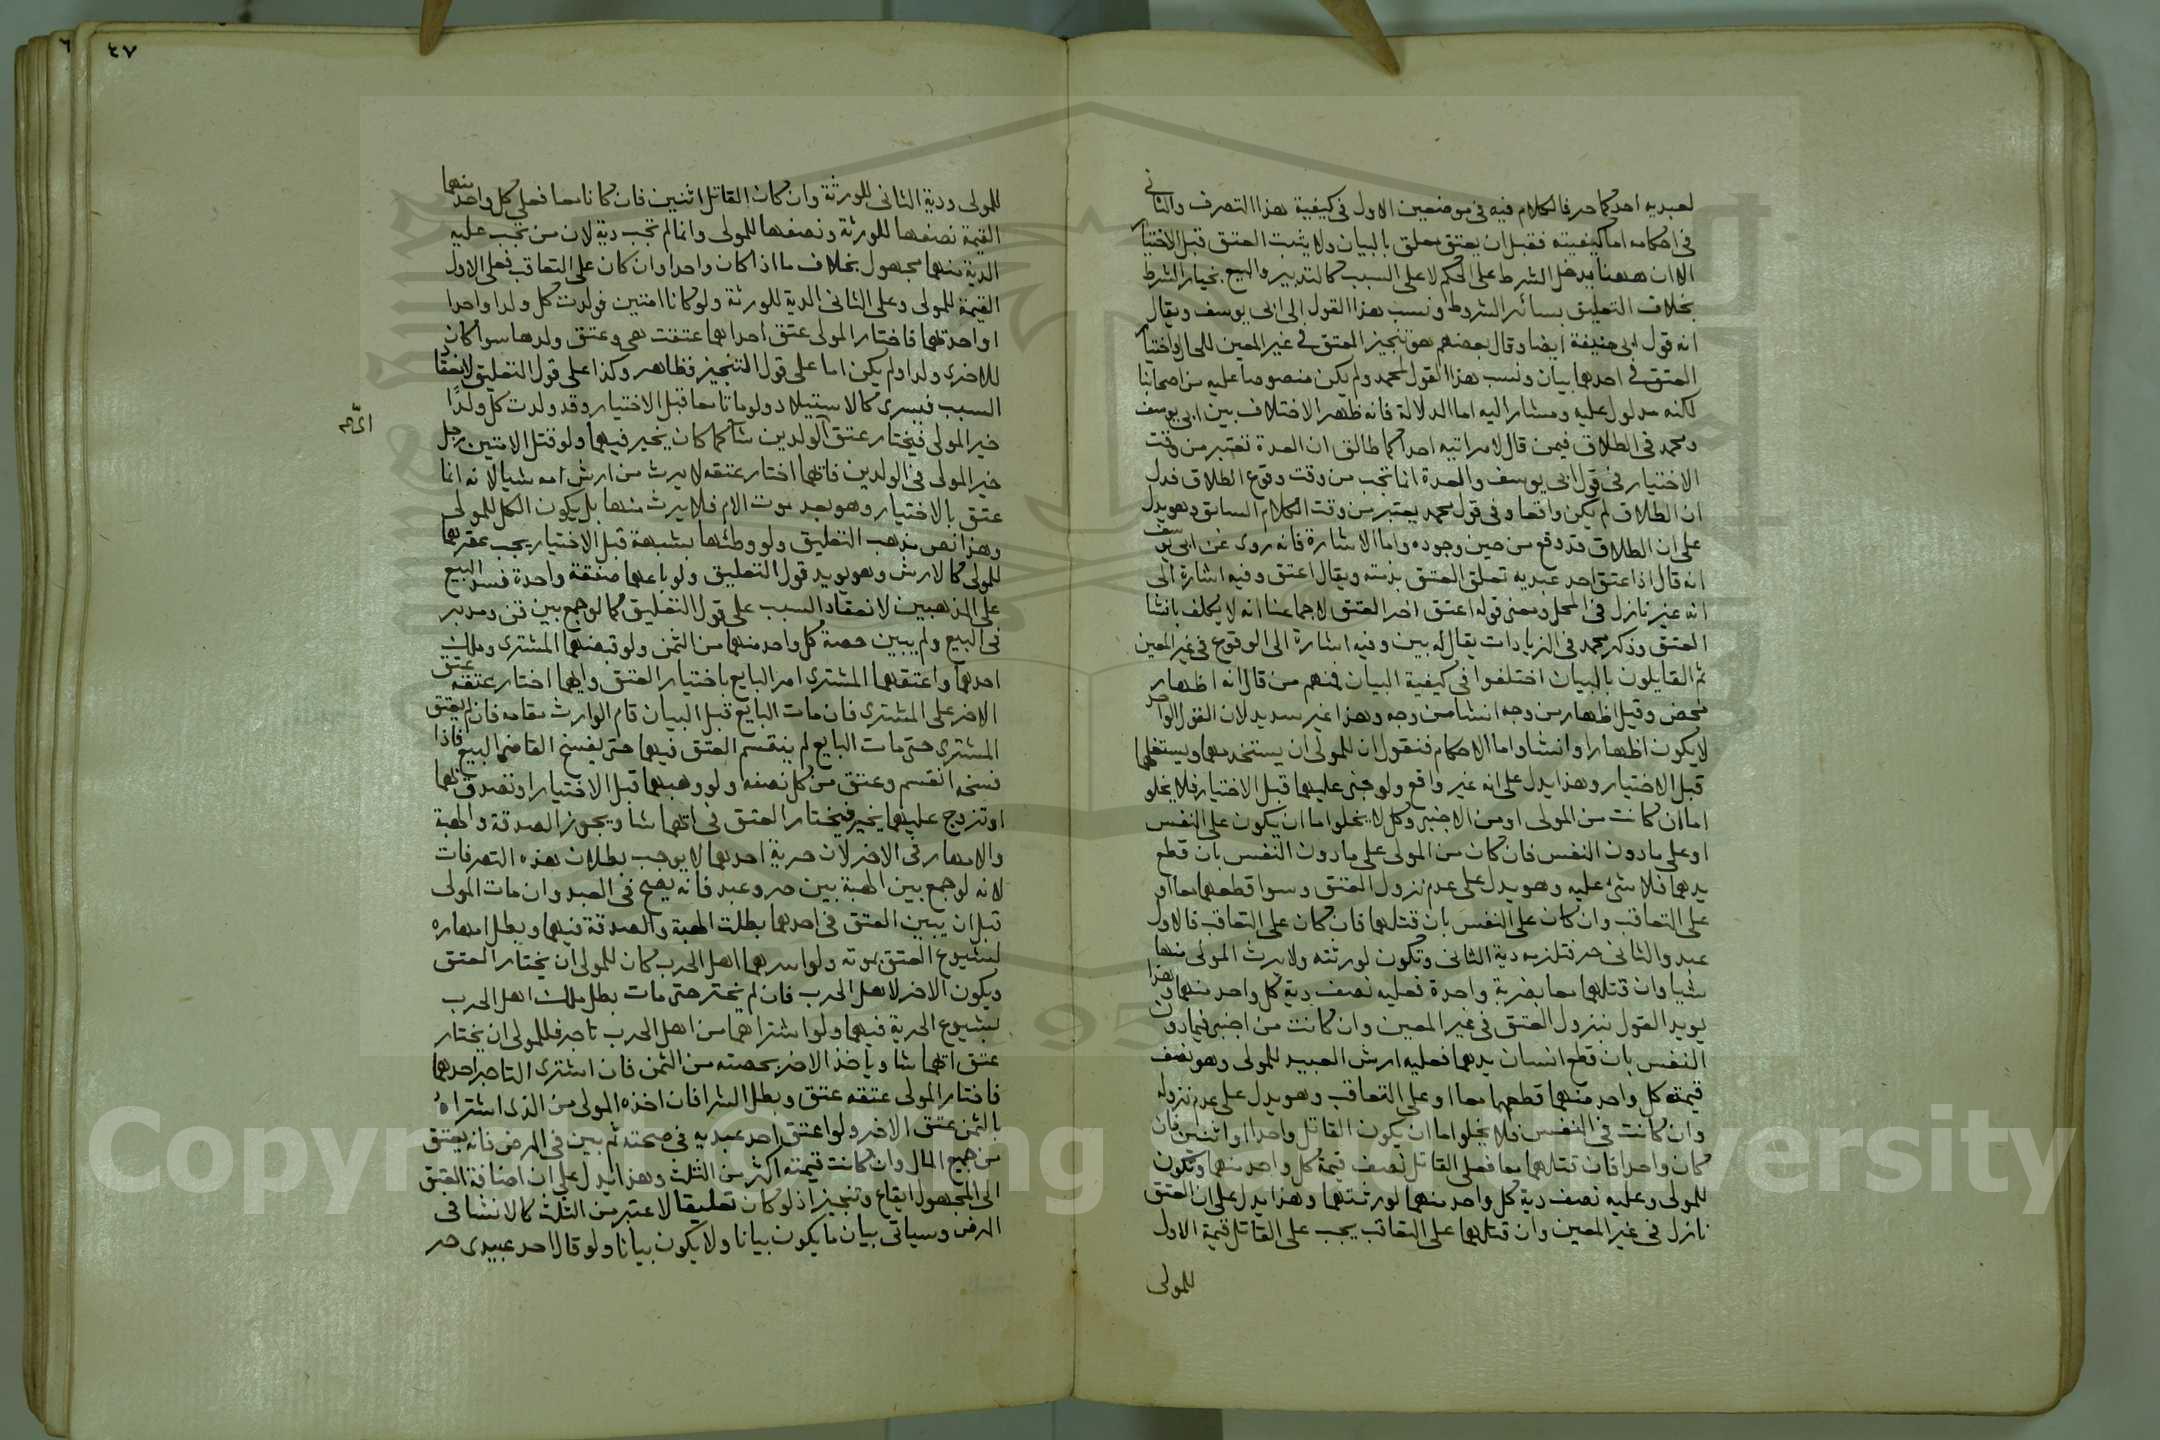 لعبديه احدكما حر فالكلام فيه فى موضعين الاول فى كيفية هذا التصرف والثانى
فى احكامه اما كيفيته فقبل ان يعتق معلق بالبيان ولا يثبت العتق قبل الاختيار
الا ان ههنا يدخل الشرط على الحكم لا على السبب كالتدبير والبيع بخيار الشرط
بخلاف التعليق بسائر الشروط ونسب هذا القول الى ابى يوسف ويقال
انه قول ابى حنيفة ايضا وقال بعضهم هو تنجيز العتق فى غير المعين للحال واختيار
العتق فى احدهما بيان ونسب هذا القول لمحمد ولم يكن منصوصا عليه من اصحابنا
لكنه مدلول عليه ومشار اليه اما الدلالة فانه ظهر الاختلاف بين ابى يوسف
ومحمد فى الطلاق فيمن قال لامراتيه احداكما طالق ان العدة تعتبر من وقت
الاختيار فى قول ابى يوسف والعدة انما تجب من وقت وقوع الطلاق فدل
ان الطلاق لم يكن واقعا وفى قول محمد يعتبر من وقت الكلام السابق وهو يدل
على ان الطلاق قد وقع من حين وجوده واما الاشارة فانه روى عن ابى يوسف
انه قال اذا عتق احد عبديه تعلق العتق بذمته ويقال اعتق وفيه اشارة الى
انه غير نازل فى المحل ومعنى قوله اعتق اختر العتق لاجماعنا انه لا يكلف بانشا
العتق وذكر محمد فى الزيادات يقال له بين وفيه اشارة الى الوقوع فى غير المعين
ثم القايلون بالبيان اختلفوا فى كيفية البيان فمنهم من قال انه اظهار
محض وقيل اظهار من وجه انشا من وجه وهذا غير سديد لان القول الواحد
لا يكون اظهارا وانشا واما الاحكام فنقول ان للمولى ان يستخدمهما ويستغلهما
قبل الاختيار وهذا يدل على انه غير واقع ولو جنى عليهما قبل الاختيار فلا يخلو
اما ان كانت من المولى او من الاجنبى وكل لا يخلوا اما ان يكون على النفس
او على ما دون النفس فان كان من المولى على ما دون النفس بان قطع
يدهما فلا شىء عليه وهو يدل على عدم نزول العتق وسوا قطعهما معا او
على التعاقب وان كان على النفس بان قتلهما فان كان على التعاقب فالاول
عبد والثانى حر فتلزمه دية الثانى وتكون لورثته ولا يرث المولى منها
شيا وان قتلهما معا بضربة واحدة فعليه نصف دية كل واحد منهما وهذا
يويد القول بنزول العتق فى غير المعين وان كانت من اجنبى فيما دون
النفس بان قطع انسان يدهما فعليه ارش العبيد للمولى وهو نصف
قيمة كل واحد منهما قطعهما معا او على التعاقب وهو يدل على عدم نزوله
وان كانت فى النفس فلا يخلوا اما ان يكون القاتل واحدا او اثنين فان
كان واحدا فان قتلهما معا فعلى القاتل نصف قيمة كل واحد منهما وتكون
للمولى وعليه نصف دية كل واحد منهما لورثتهما وهذا يدل على ان العتق
نازل فى غير المعين وان قتلهما على التعاقب يجب على القاتل قيمة الاول
للمولى
٤٧
٦
للمولى ودية الثانى للورثة وان كان القاتل اثنين فان كانا معا فعلى كل واحد منهما
القيمة نصفها للورثة ونصفها للمولى وانما لم تجب دية لان من تجب عليه
الدية منهما مجهول بخلاف ما اذا كان واحدا وان كان على التعاقب فعلى الاول
القيمة للمولى وعلى الثانى الدية للورثة ولو كانا امتين فولدت كل ولدا واحدا
او احدتهما فاختار المولى عتق احداهما عتقت هى وعتق ولدها سوا كان
للاخرى ولد او لم يكن اما على قول التنجيز فظاهر وكذا على قول التعليق لانعقاد
السبب فيسرى كالاستيلاد ولو ماتا معا قبل الاختيار وقد ولدت كل ولدًا
خير المولى فيختار عتق اى الولدين شا كما كان يخير فيهما ولو قتل الامتين رجل
خير المولى فى الولدين فايهما اختار عتقه لا يرث من ارش امه شيا لانه انما
عتق بالاختيار وهو بعد موت الام فلا يرث منها بل يكون الكل للمولى
وهذا نص مذهب التعليق ولو وطئهما بشبهة قبل الاختيار يجب عقرهما
للمولى كالارش وهو يويد قول التعليق ولو باعهما صفقة واحدة فسد البيع
على المذهبين لانعقاد السبب على قول التعليق كما لو جمع بين قن ومدبر
فى البيع ولم يبين حصة كل واحد منهما من الثمن ولو قبضهما المشترى وملك
احدهما واعتقهما المشترى امر البايع باختيار العتق وايهما اختار عتقه عتق
الاخر على المشترى فان مات البايع قبل البيان قام الوارث مقامه فان لم يعتق
المشترى حتى مات البايع لم ينقسم العتق فيهما حتى يفسخ القاضى البيع فاذا
فسخه انقسم وعتق من كل نصفه ولو وهبهما قبل الاختيار او تصدق بهما
او تزوج عليهما يخير فيختار العتق فى ايهما شا ويجوز الصدقة والهبة
والامهار فى الاخر لان حرية احدهما لا يوجب بطلان هذه التصرفات
لانه لو جمع بين الهبة بين حر وعبد فانه يصح فى العبد وان مات المولى
قبل ان يبين العتق فى احدهما بطلت الهبة والصدقة فيهما وبطل امهاره
لشيوع العتق بموته ولو اسرهما اهل الحرب كان للمولى ان يختار العتق
ويكون الاخر لاهل الحرب فان لم يختر حتى مات بطل ملك اهل الحرب
لشيوع الحرية فيهما ولو اشتراهما من اهل الحرب تاجر فللمولى ان يختار
عتق ايهما شا وياخذ الاخر بحصته من الثمن فان اشترى التاجر احدهما
فاختار المولى عتقه عتق وبطل الشرا فان اخذه المولى من الذى اشتراه
بالثمن عتق الاخر ولو اعتق احد عبديه فى صحته ثم بين فى المرض فانه يعتق
من جميع المال وان كانت قيمته اكثر من الثلث وهذا يدل على ان اضافة العتق
الى المجهول ايقاع وتنجيز اذ لو كان تعليقا لاعتبر من الثلث كالانشا فى
المرض وسياتى بيان ما يكون بيانا ولا يكون بيانا ولو قال احد عبيدى حر